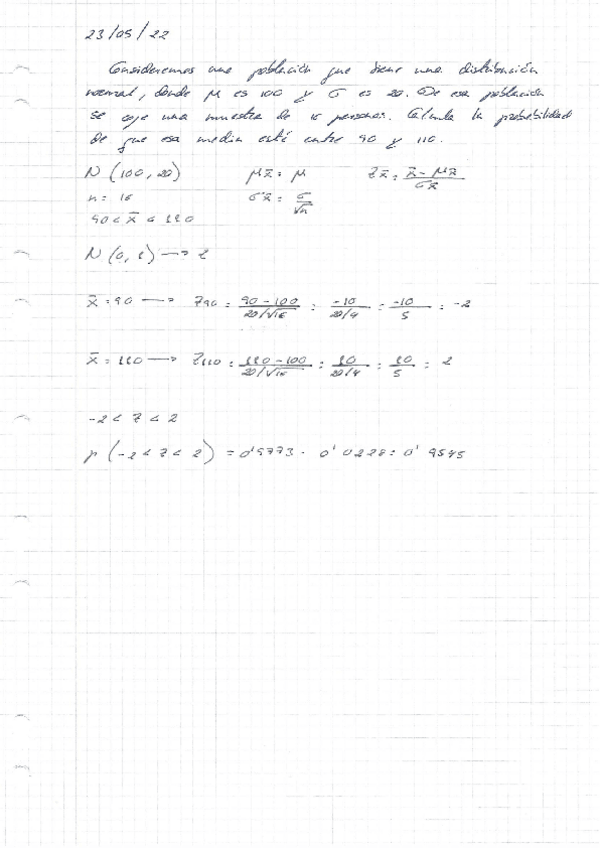 23/05/22
Consideremos una población que tiene una distribución
normal, donde μ es 100 y σ es 20. De esa población
se coje una muestra de 16 personas. Calcula la probabilidad
de que esa media esté entre 90 y 110.
N (100, 20) μx̄ = μ Zx̄ = x̄ - μx̄ / σx̄
n = 16 σx̄ = σ / √n
90 < x̄ < 110
N (0, 1) → Z
x̄ = 90 → Z90 = 90 - 100 / 20/√16 = -10 / 20/4 = -10 / 5 = -2
x̄ = 110 → Z110 = 110 - 100 / 20/√16 = 10 / 20/4 = 10 / 5 = 2
-2 < Z < 2
p (-2 < Z < 2) = 0'9773 - 0'0228 = 0'9545